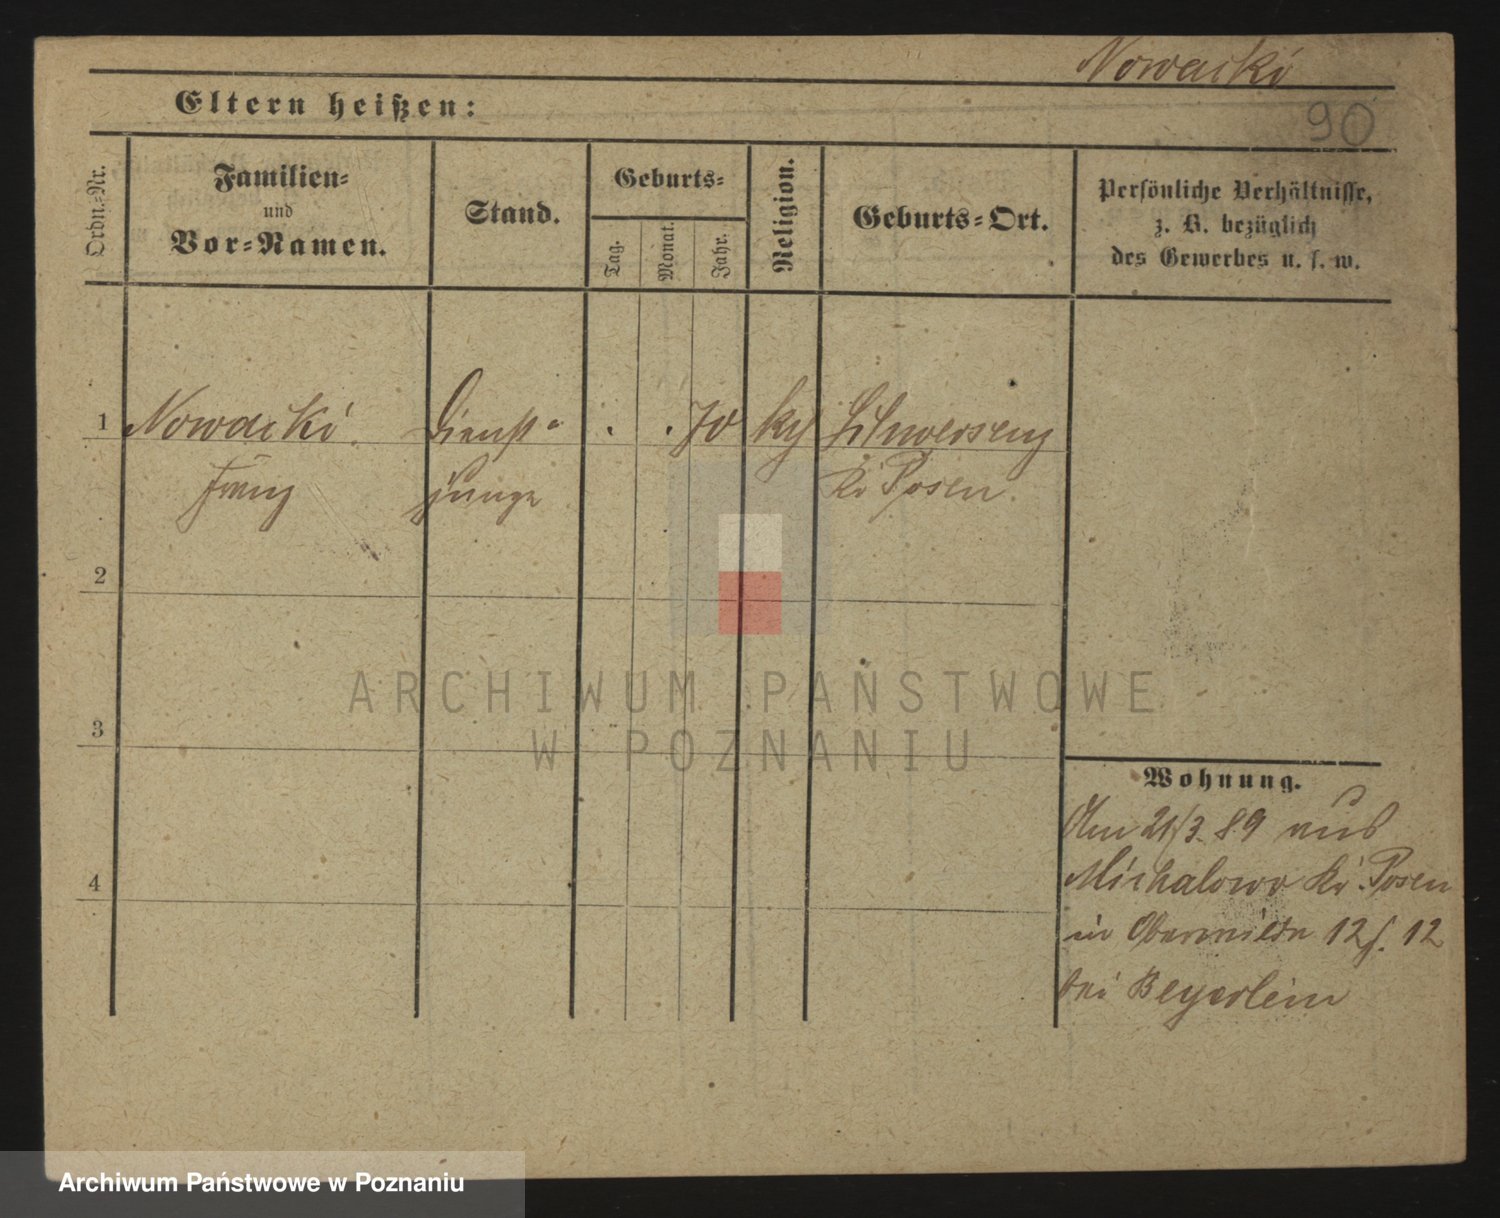 Nowacki
Eltern heißen:
90
Ordn.-Nr.
Familien-
und
Vor-Namen.
Stand.
Geburts-
Tag.
Monat.
Jahr.
Religion.
Geburts-Ort.
Persönliche Verhältnisse,
z. B. bezüglich
des Gewerbes u. s. w.
1
Nowacki
Dienst-
. . 70
Franz
junge
Kr Posen.
2
3
4
ARCHIWUM PAŃSTWOWE
W POZNANIU
Wohnung.
Am 21/3. 89 aus
Michalowo Kr. Posen
in Oberwilda 12 12
bei Beyerlein
Archiwum Państwowe w Poznaniu